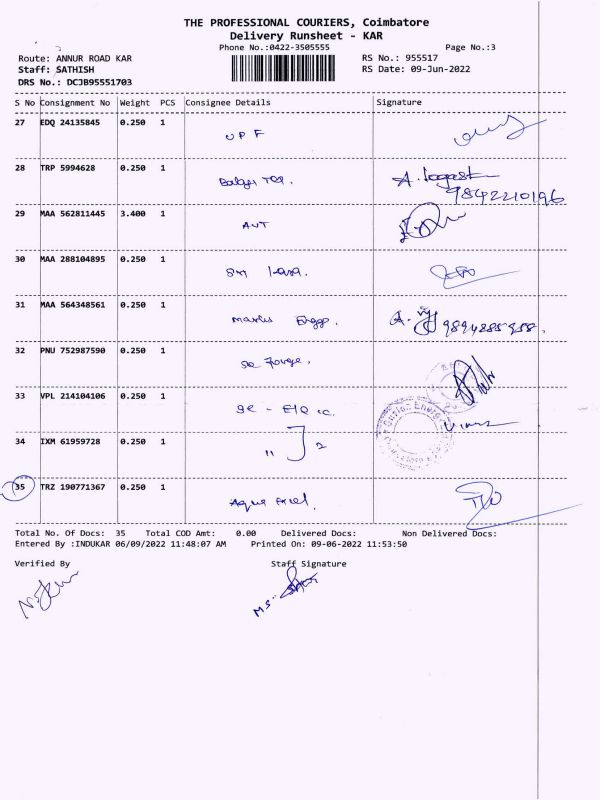 THE PROFESSIONAL COURIERS, Coimbatore
Delivery Runsheet - KAR
Phone No.:0422-3505555 Page No.:3
Route: ANNUR ROAD KAR RS No.: 955517
Staff: SATHISH RS Date: 09-Jun-2022
DRS No.: DCJB95551703
S No Consignment No Weight PCS Consignee Details Signature
27 EDQ 24135845 0.250 1 UPF
28 TRP 5994628 0.250 1
9842210196
29 MAA 562811445 3.400 1 AUT
30 MAA 288104895 0.250 1 Sri
31 MAA 564348561 0.250 1 A.
32 PNU 752987590 0.250 1
33 VPL 214104106 0.250 1
34 IXM 61959728 0.250 1 " 2
35 TRZ 190771367 0.250 1 Aqua Excel.
Total No. Of Docs: 35 Total COD Amt: 0.00 Delivered Docs: Non Delivered Docs:
Entered By :INDUKAR 06/09/2022 11:48:07 AM Printed On: 09-06-2022 11:53:50
Verified By Staff Signature